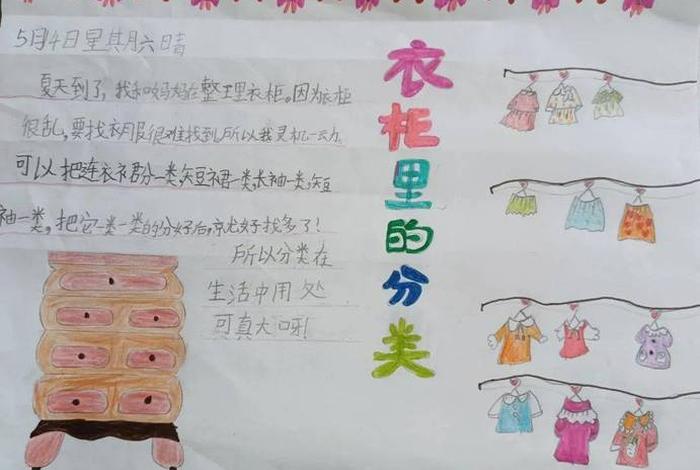 5月4日星其月六日晴
夏天到了，我和妈妈在整理衣柜。因为衣柜
很乱，要找衣月服很难找到所以我灵机一动，
可以把连衣衤君分一类，矢豆衤君一类，长袖一类，矢豆
袖一类，把它一类一类的分好后，京尤好找多了！
所以分类在
生活中用处
可真大呀！
衣柜里的分类